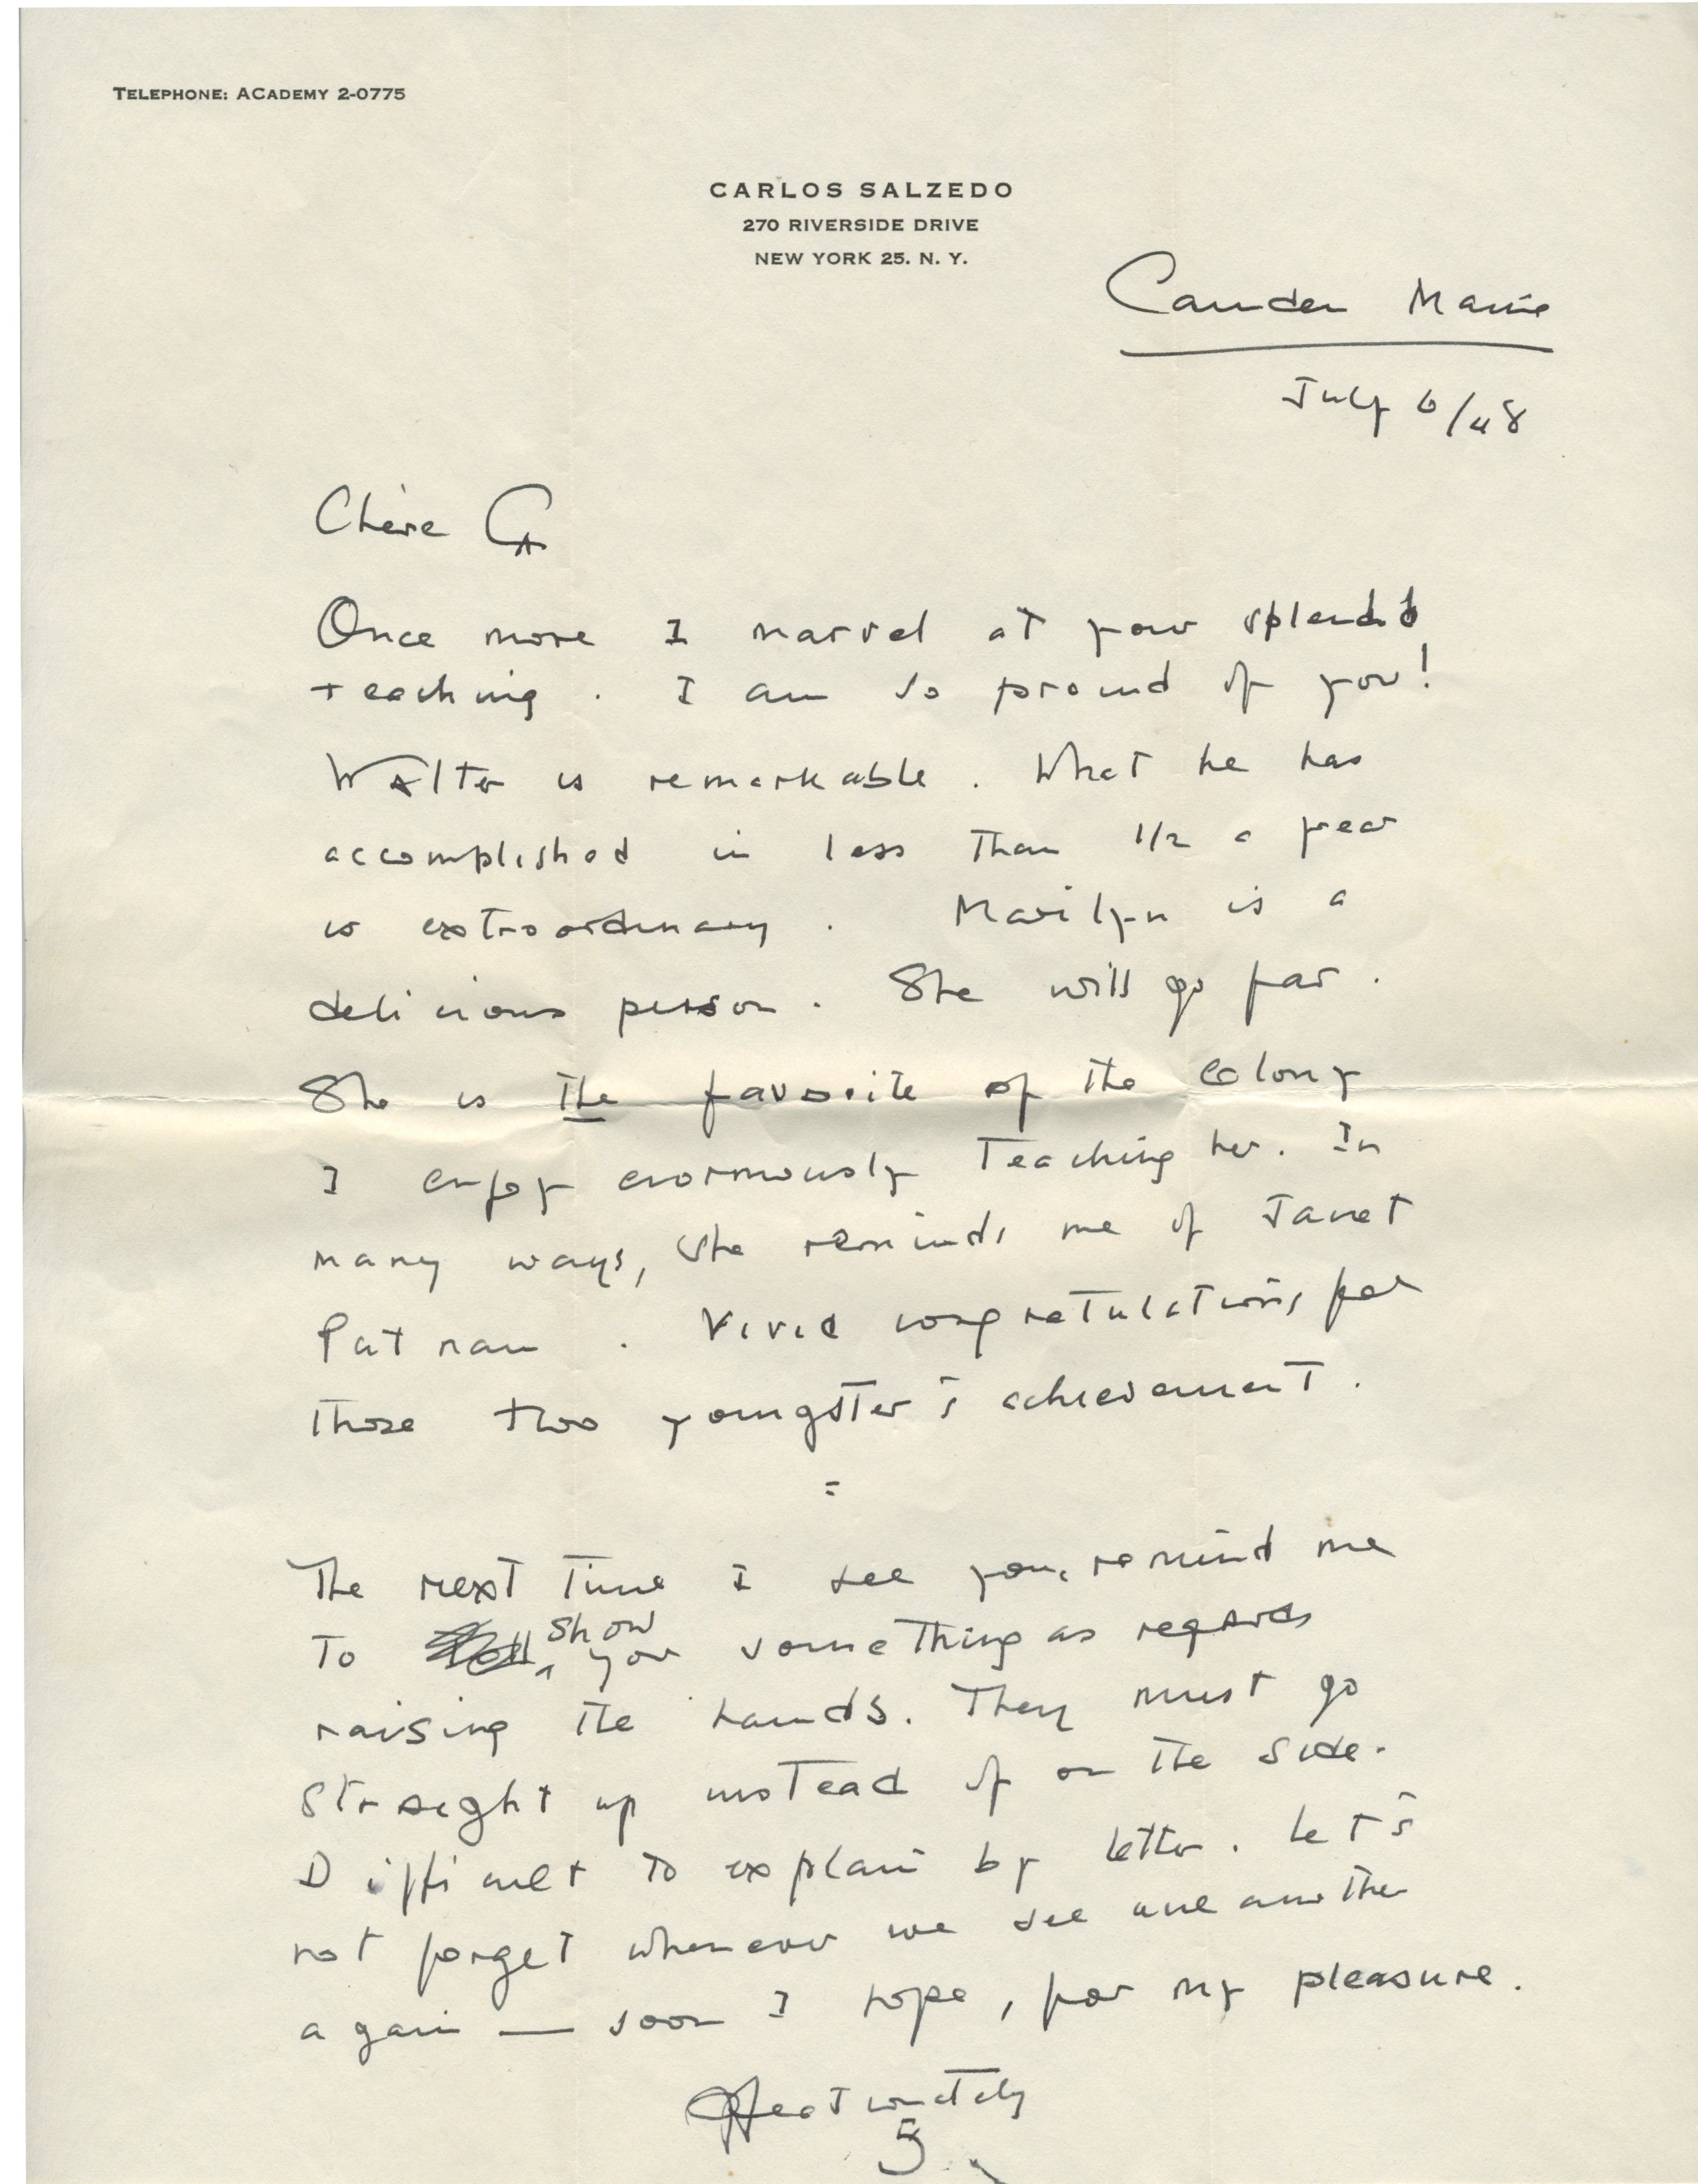 TELEPHONE: ACADEMY 2-0775
CARLOS SALZEDO
270 RIVERSIDE DRIVE
NEW YORK 25. N. Y.
Camden Maine
July 6/48
Chère
Once more I marvel at your splendid
teaching. I am so proud of you!
Walter is remarkable. What he has
accomplished in less Than 1/2 a year
is extraordinary. Marilyn is a
delicious person. She will go far.
She is the favorite of the colony
I enjoy enormously Teaching her. In
many ways, she reminds me of Janet
Putnam. Vivid congratulations for
Those two youngster's achievement.
=
The next Time I see you, remind me
To show you something as regards
raising the hands. They must go
straight up instead of on the side.
Difficult To explain by letter. Let's
not forget whenever we see one another
again — soon I hope, for my pleasure.
Affectionately
S